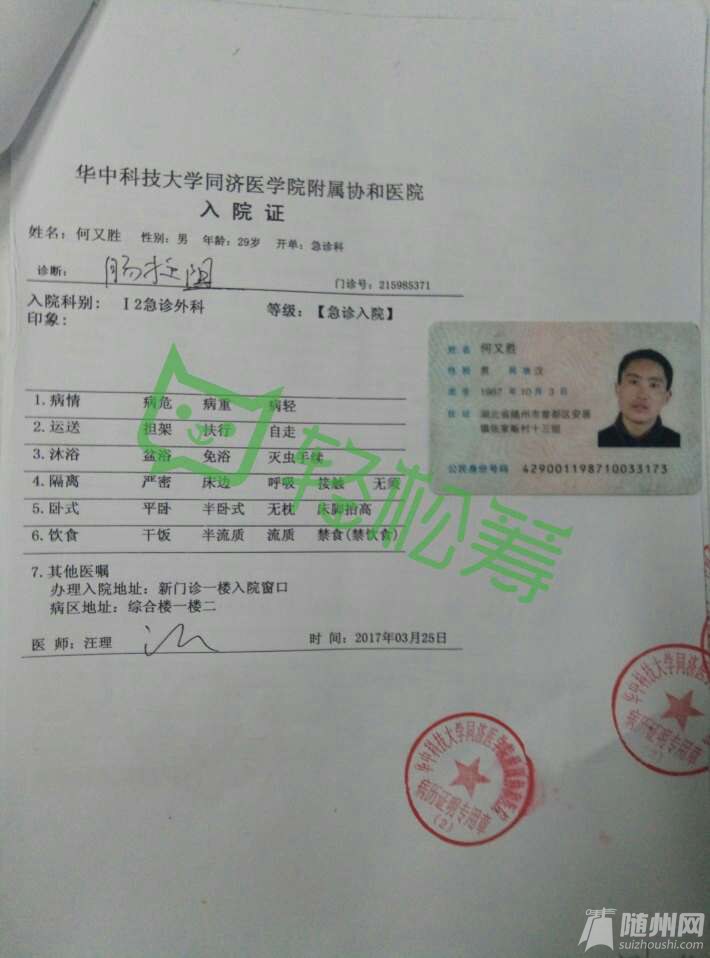 华中科技大学同济医学院附属协和医院
入 院 证
姓名: 何又胜 性别: 男 年龄: 29岁 开单: 急诊科
诊断: 肠梗阻
门诊号: 215985371
入院科别: I2急诊外科 等级: 【急诊入院】
印象:
1. 病情 病危 病重 病轻
2. 运送 担架 扶行 自走
3. 沐浴 盆浴 免浴 灭虫手续
4. 隔离 严密 床边 呼吸 接触 无须
5. 卧式 平卧 半卧式 无枕 床脚抬高
6. 饮食 干饭 半流质 流质 禁食(禁饮食)
7. 其他医嘱
办理入院地址: 新门诊一楼入院窗口
病区地址: 综合楼一楼二
医 师: 汪理 时 间: 2017年03月25日
姓名 何又胜
性别 男 民族 汉
出生 1987 年 10 月 3 日
住址 湖北省随州市曾都区安居
镇张家畈村十三组
公民身份号码 429001198710033173
轻松筹
华中科技大学同济医学院附属协和医院
病历证明专用章
(2)
华中科技大学同济医
病历证明专用章
(2)
随州网
suizhoushi.com